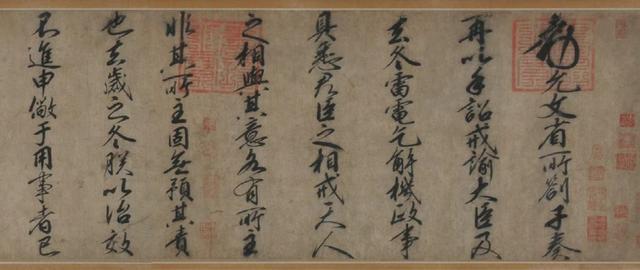 敕允文省所劄子奏
再以手詔戒諭大臣及
去冬雷電乞解機政事
具悉君臣之相戒天人
之相與其意各有所主
非其所主固無預其責
也去歲之冬朕以治效
不進申儆于用事者已